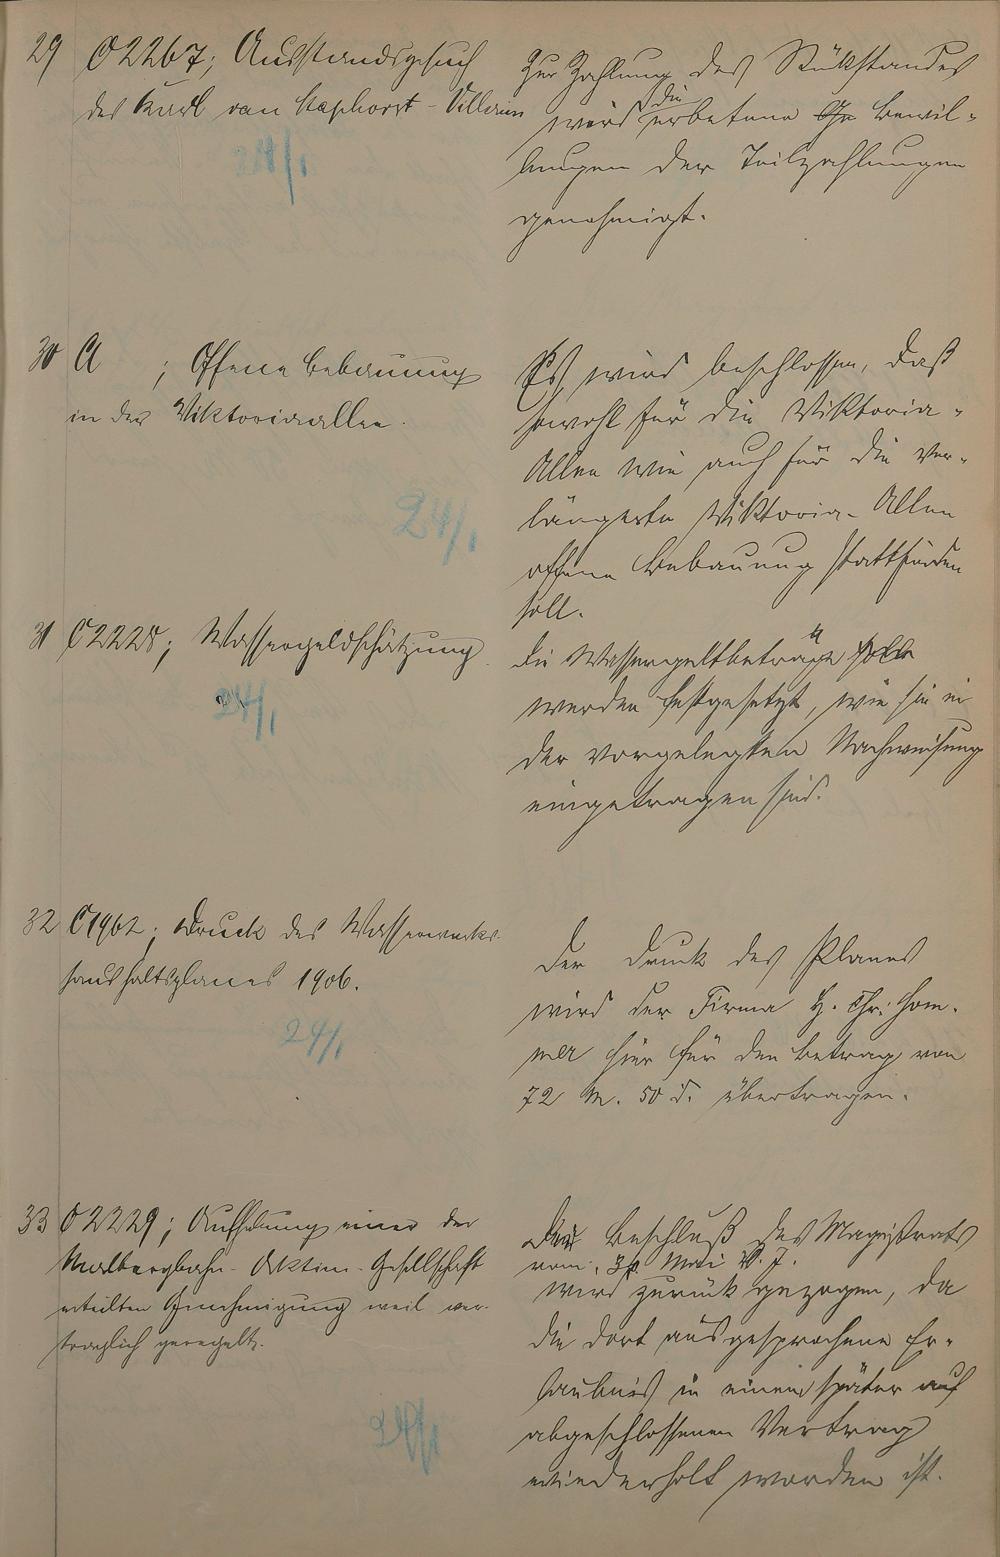 29 O 2267; Ausstandsgesuch
des Karl van Kaphorst-Villerius
24/1
Zur Zahlung des Rückstandes
wird die erbetene Ge Bewil-
ligungen der Teilzahlungen
genehmigt.
30 A ; Offene Bebauung
in der Viktoriaallee.
24/1
Es wird beschlossen, daß
sowohl für die Viktoria-
Allee wie auch für die ver-
längerte Viktoria-Allee
offene Bebauung stattfinden
soll.
31 C 2228; Wassergeldschätzung
24/1
Die Wassergeldbeträge
werden festgesetzt, wie sie in
der vorgelegten Nachweisung
eingetragen sind.
32 C 1962; Druck des Wasserwerks-
haushaltsplanes 1906.
24/1
Der Druck des Planes
wird der Firma H. Chr. Som-
mer hier für den Betrag von
72 M. 50 d. übertragen.
33 O 2229; Aufhebung einer der
Malbergbahn-Aktien-Gesellschaft
erteilten Genehmigung weil ver-
traglich geregelt.
24/1
Der Beschluß des Magistrats
vom Mai v. J.
wird zurück gezogen, da
die dort ausgesprochene Er-
laubnis in einem später auf
abgeschlossenen Vertrag
wiederholt worden ist.